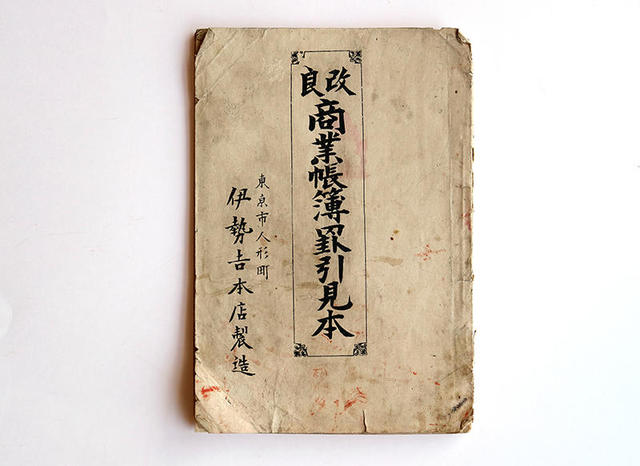 改良
商業帳簿罫引見本
東京市人形町
伊勢吉本店製造